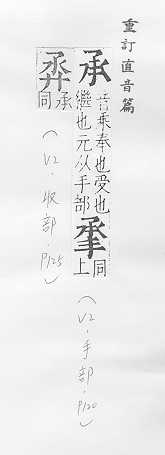 重訂直音篇
承 音乘奉也受也
繼也元从手部 𠄘 同上
（V2．手部．P120）
承同
（V2．収部．P125）